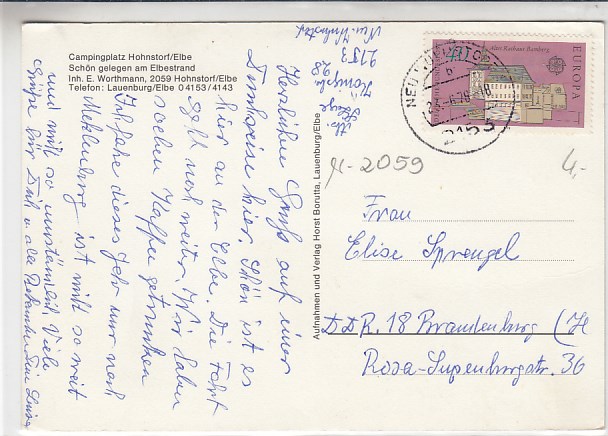 Campingplatz Hohnstorf/Elbe
Schön gelegen am Elbestrand
Inh. E. Worthmann, 2059 Hohnstorf/Elbe
Telefon: Lauenburg/Elbe 04153/4143
Herzlichen Gruß auf einer
Durchreise hier. Schön ist es
hier an der Elbe. Die Fahrt
geht noch weiter. Wir haben
soeben Kaffee getrunken
dieses Jahr nur nach
Meklenburg ist mich so weit
und mich so umständlich. Viele
Grüße für Dich u. alle Bekannten Dein
2153
Aufnahmen und Verlag Horst Borutta, Lauenburg/Elbe
Altes Rathaus Bamberg
EUROPA
40
NEU
2153
-2059
4,-
Frau
Elise Sprengel
DDR. 18 Brandenburg (H
36